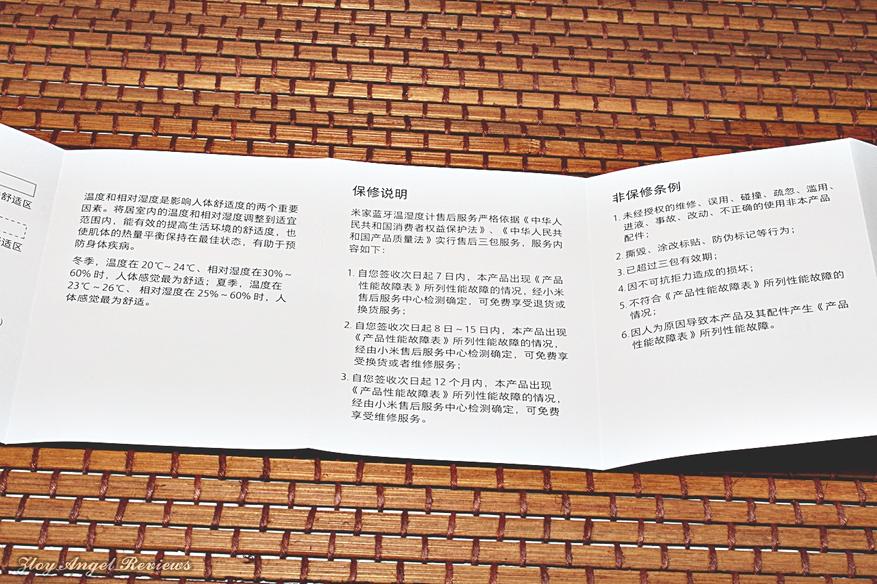 舒适区
舒适区
）
温度和相对湿度是影响人体舒适度的两个重要
因素。将居室内的温度和相对湿度调整到适宜
范围内，能有效的提高生活环境的舒适度，也
使肌体的热量平衡保持在最佳状态，有助于预
防身体疾病。
冬季，温度在 20℃~24℃、相对湿度在30%~
60%时，人体感觉最为舒适；夏季，温度在
23℃~26℃、 相对湿度在 25%~60% 时，人
体感觉最为舒适。
保修说明
米家蓝牙温湿度计售后服务严格依据《中华人
民共和国消费者权益保护法》、《中华人民共
和国产品质量法》实行售后三包服务，服务内
容如下：
1. 自您签收次日起 7 日内，本产品出现《产品
性能故障表》所列性能故障的情况，经小米
售后服务中心检测确定，可免费享受退货或
换货服务；
2. 自您签收次日起 8 日~15 日内，本产品出现
《产品性能故障表》所列性能故障的情况，
经由小米售后服务中心检测确定，可免费享
受换货或者维修服务；
3. 自您签收次日起 12 个月内，本产品出现
《产品性能故障表》所列性能故障的情况，
经由小米售后服务中心检测确定，可免费
享受维修服务。
非保修条例
1. 未经授权的维修、误用、碰撞、疏忽、滥用、
进液、事故、改动、不正确的使用非本产品
配件；
2. 撕毁、涂改标贴、防伪标记等行为；
3. 已超过三包有效期；
4. 因不可抗拒力造成的损坏；
5. 不符合《产品性能故障表》所列性能故障的
情况；
6. 因人为原因导致本产品及其配件产生《产品
性能故障表》所列性能故障。
Zloy Angel Reviews